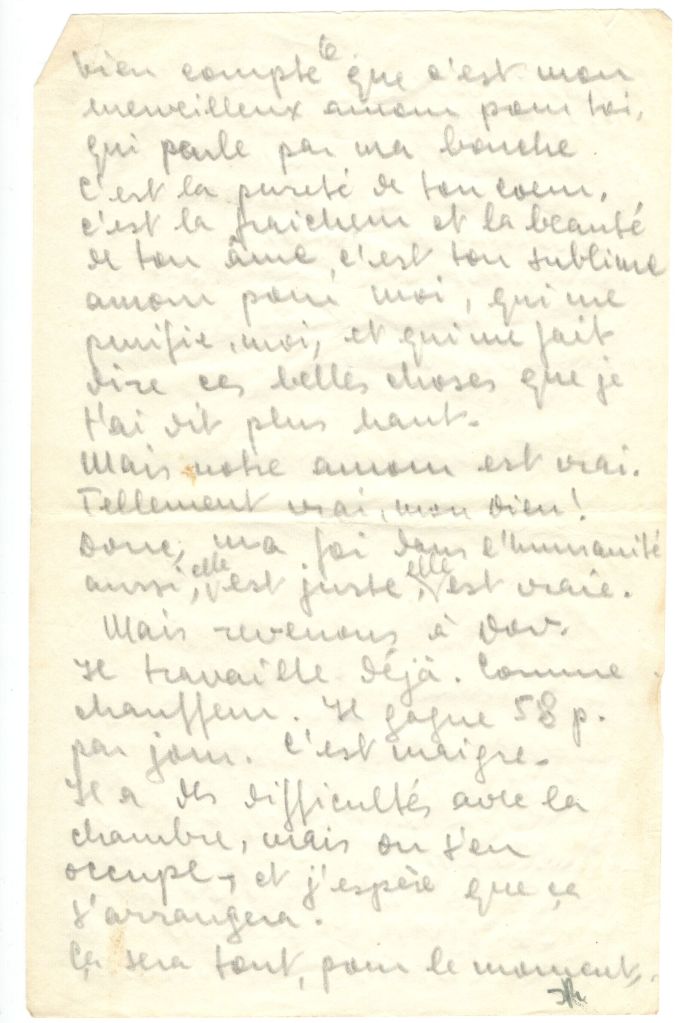 6
bien compte que c'est mon
merveilleux amour pour toi,
qui parle par ma bouche.
C'est la pureté de ton coeur,
c'est la fraicheur et la beauté
de ton âme, c'est ton sublime
amour pour moi, qui me
purifie, moi, et qui me fait
dire ces belles choses que je
t'ai dit plus haut.
Mais notre amour est vrai.
Tellement vrai, mon Dieu!
Donc, ma foi dans l'humanité
aussi, elle est juste, elle est vraie.
Mais revenons à Dov.
Il travaille déjà. Comme
chauffeur. Il gagne 58 p.
par jour. C'est maigre.
Il a des difficultés avec la
chambre, mais on s'en
occupe, et j'espère que ça
s'arrangera.
Ça sera tout, pour le moment.